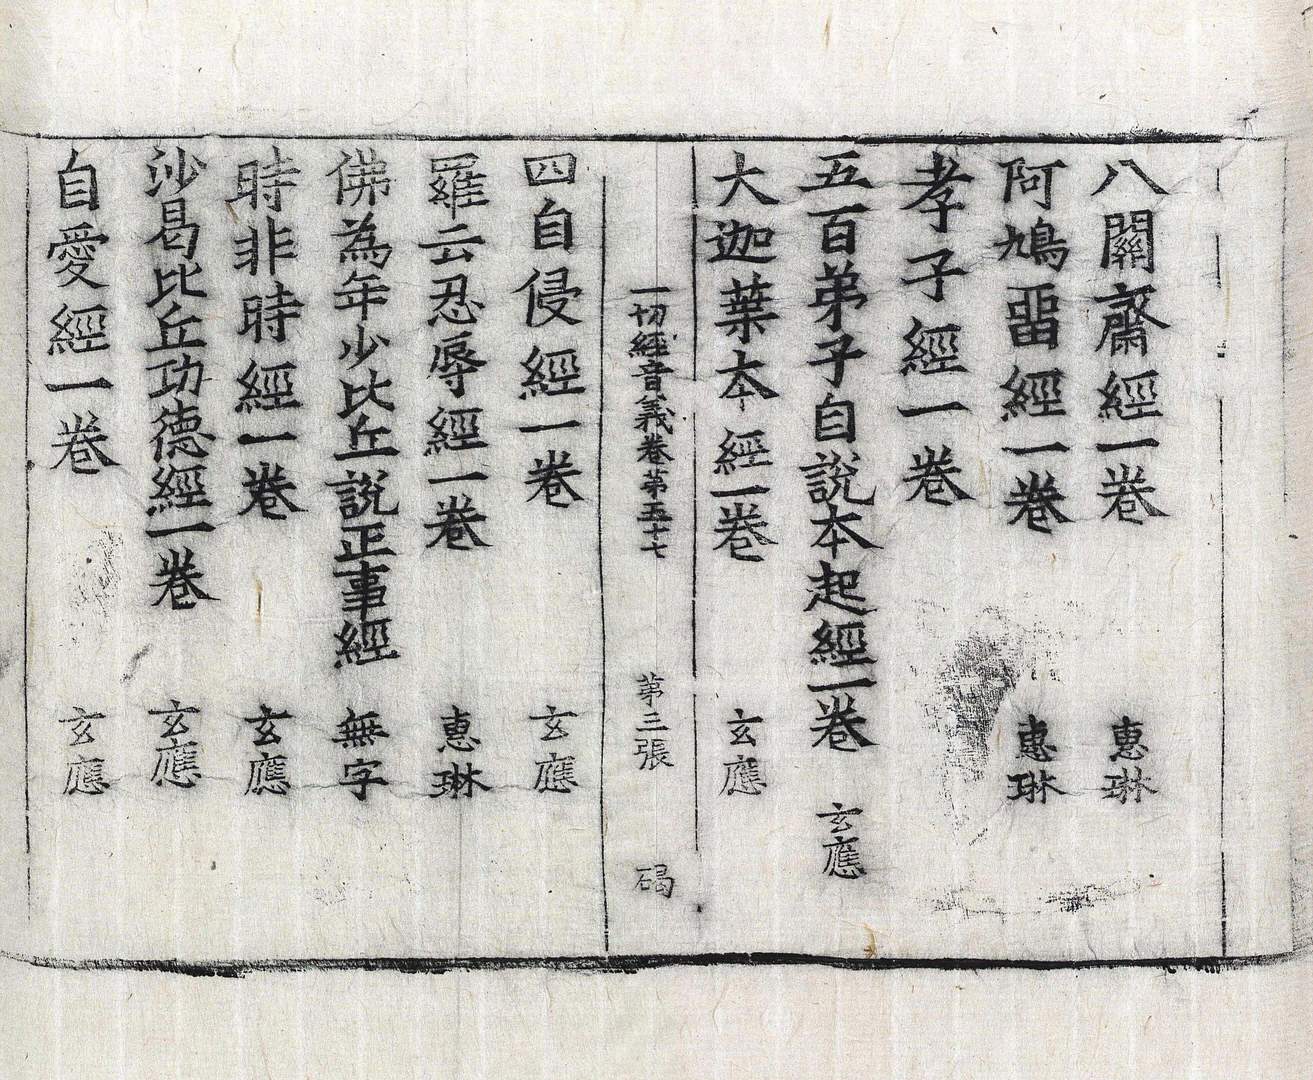 八關齋經一卷 惠琳
阿鳩留經一卷 惠琳
孝子經一卷
五百弟子自說本起經一卷 玄應
大迦葉本經一卷 玄應
一切經音義卷第五十七 第三張 碣
四自侵經一卷 玄應
羅云忍辱經一卷 惠琳
佛為年少比丘說正事經 無字
時非時經一卷 玄應
沙曷比丘功德經一卷 玄應
自愛經一卷 玄應